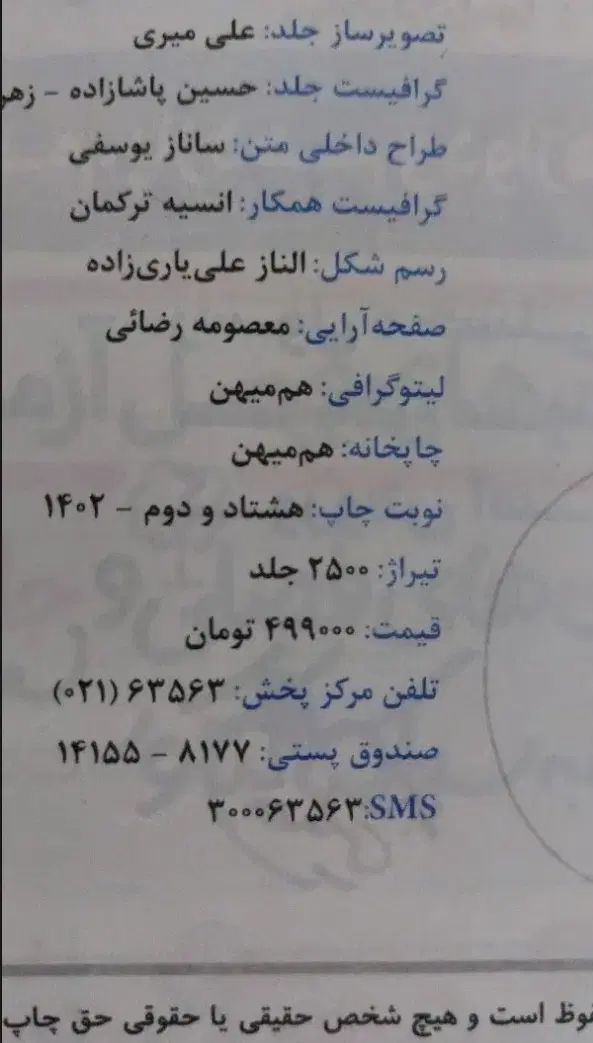 تصویرساز جلد: علی میری
گرافیست جلد: حسین پاشازاده -
طراح داخلی متن: ساناز یوسفی
گرافیست همکار: انسیه ترکمان
رسم شکل: الناز علی‌یاری‌زاده
صفحه‌آرایی: معصومه رضائی
لیتوگرافی: هم‌میهن
چاپخانه: هم‌میهن
نوبت چاپ: هشتاد و دوم - ۱۴۰۲
تیراژ: ۲۵۰۰ جلد
قیمت: ۴۹۹۰۰۰ تومان
تلفن مرکز پخش: ۶۳۵۶۳ (۰۲۱)
صندوق پستی: ۸۱۷۷ - ۱۴۱۵۵
SMS:۳۰۰۰۶۳۵۶۳
است و هیچ شخص حقیقی یا حقوقی حق چاپ